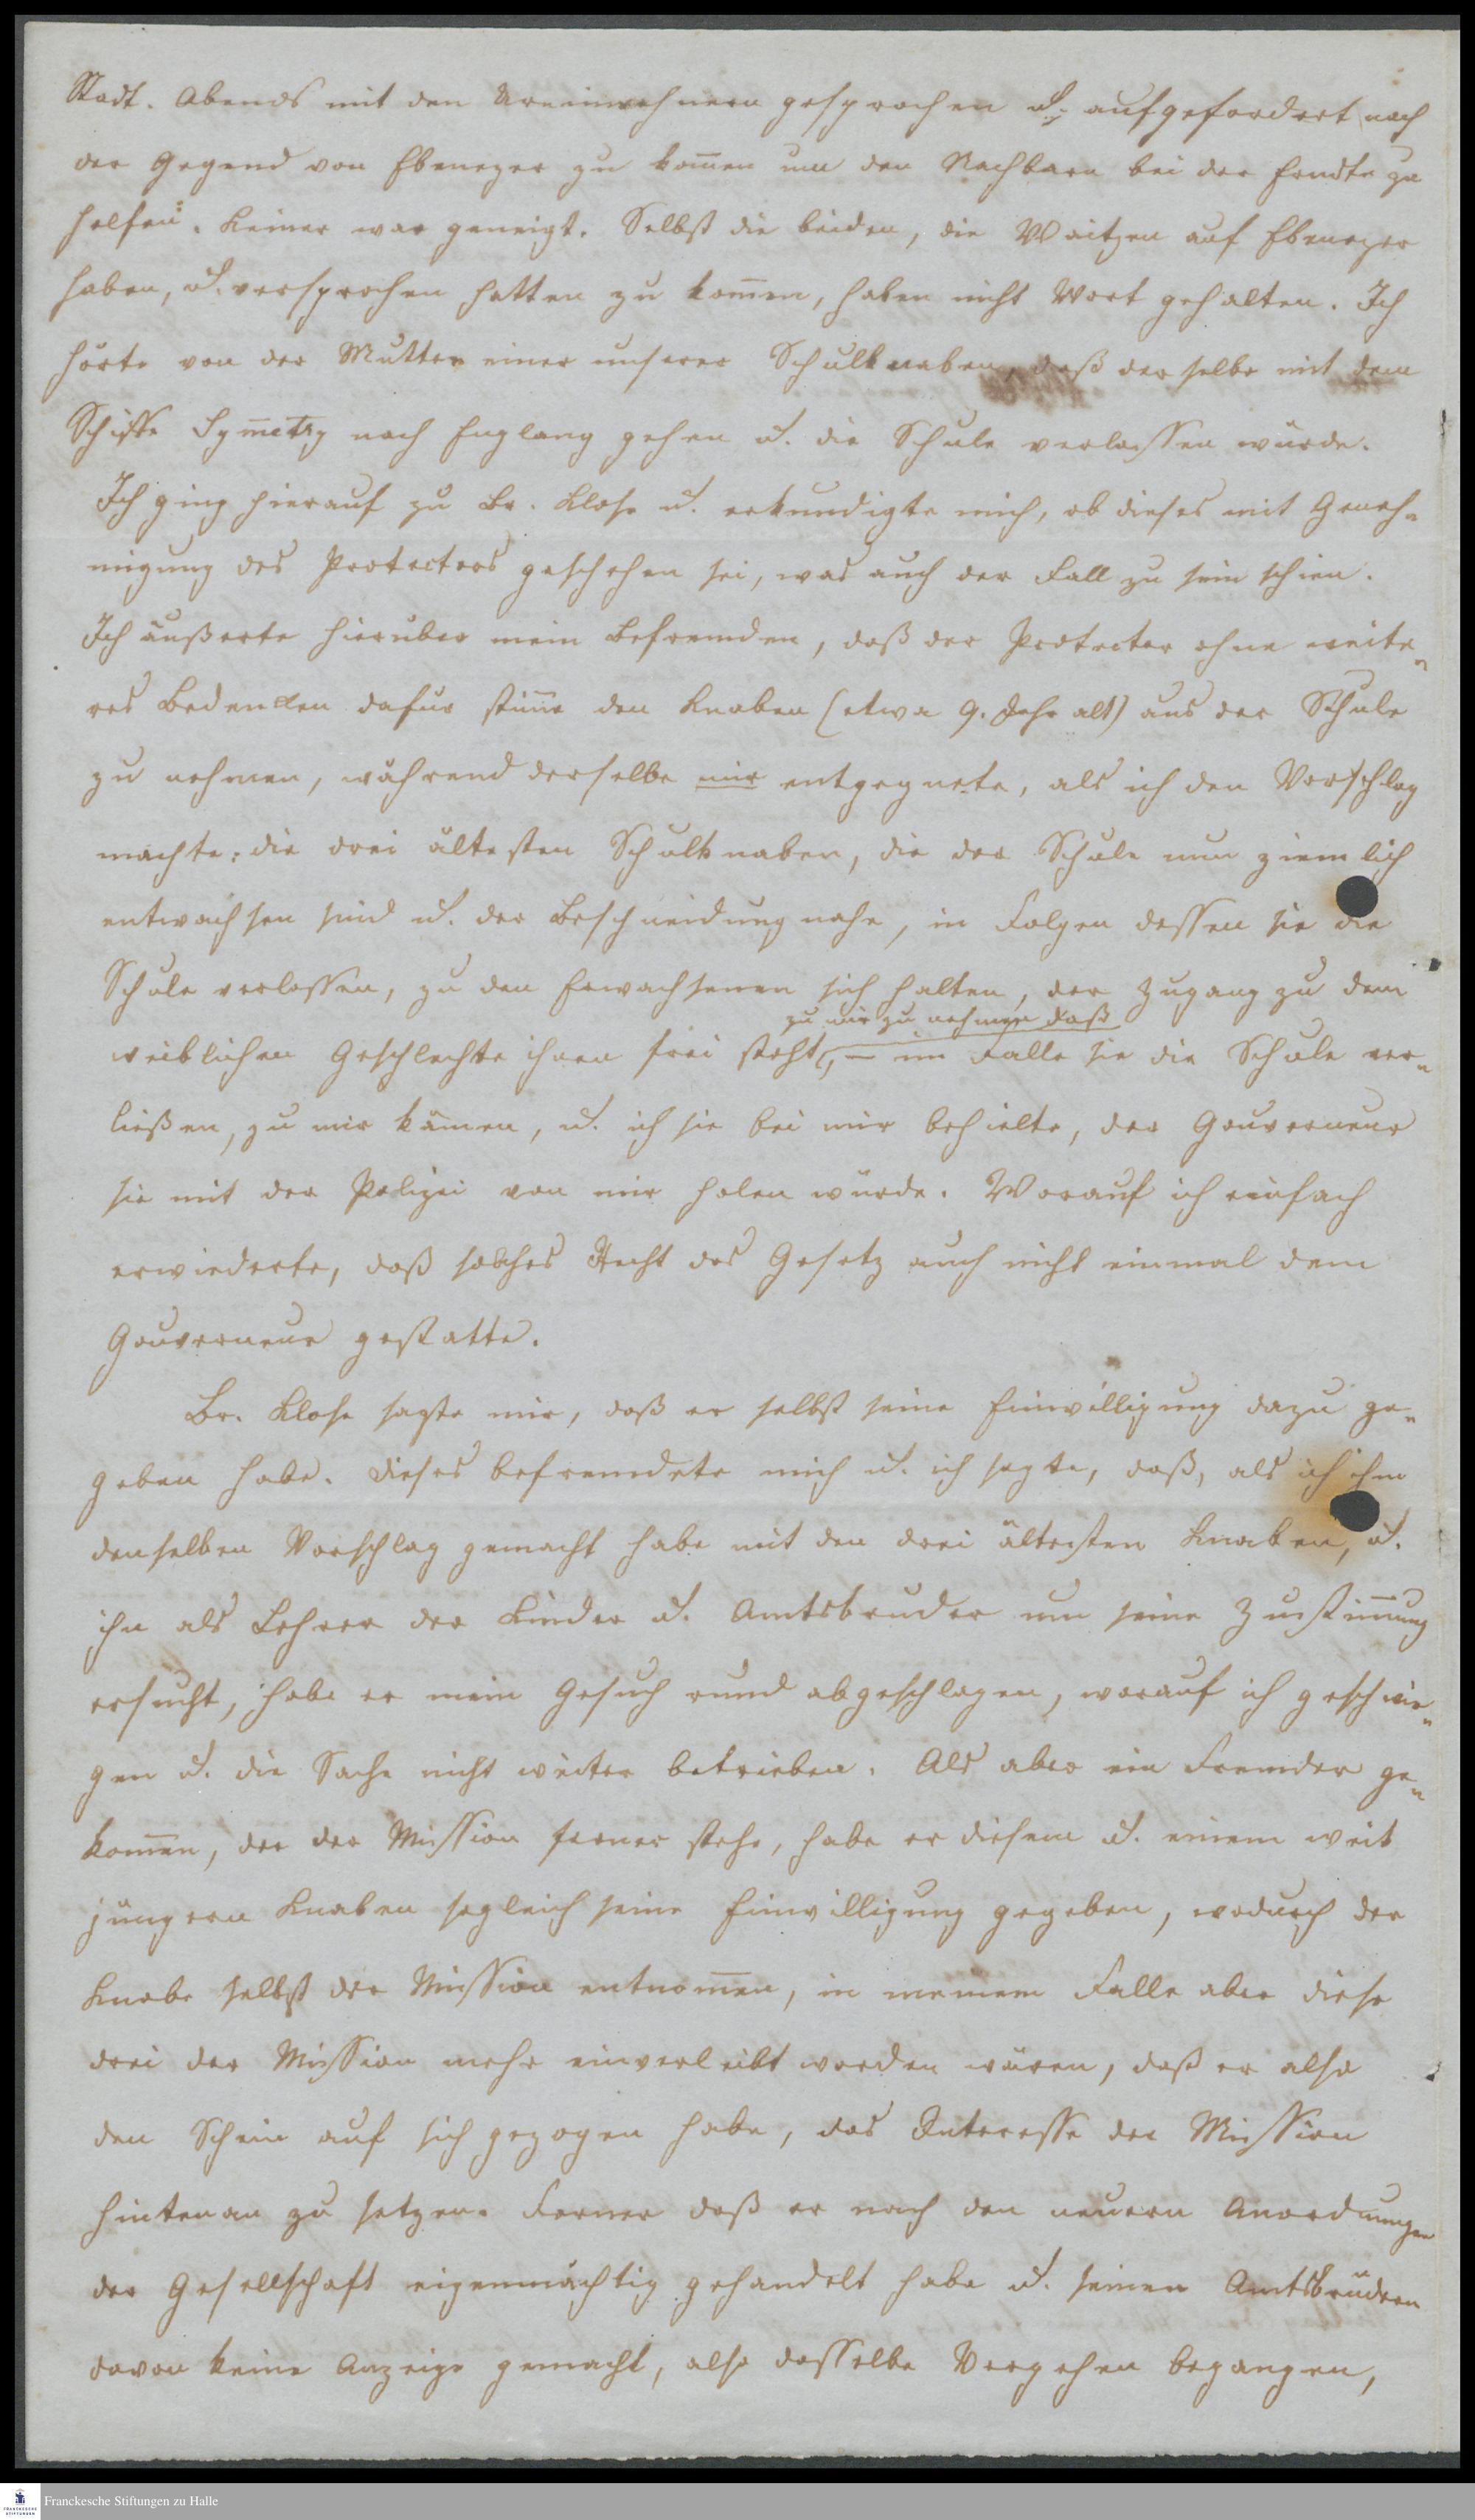 Stadt. Abends mit den Ureinwohnern gesprochen u. aufgefordert nach
der Gegend von Ebenezer zu kom̄en um den Nachbarn bei der Erndte zu
helfen. Keiner war geneigt. Selbst die beiden, die Waitzen auf Ebenezer
haben, u. versprochen hatten zu kom̄en, haben nicht Wort gehalten. Ich
hörte von der Mutter einer unserer Schulknaben, daß derselbe mit dem
Schiffe Sym̄etry nach Englang gehen u. die Schule verlassen würde.
Ich ging hierauf zu Br. Klose u. erkundigte mich, ob dieses mit Geneh-
migung des Protectors geschehen sei, was auch der Fall zu sein schien.
Ich äußerte hierüber mein Befremden, daß der Protector ohne weite-
res Bedenken dafür stim̄e den Knaben (etwa 9. Jahr alt) aus der Schule
zu nehmen, während derselbe mir entgegnete, als ich den Vorschlag
machte: die drei ältesten Schulknaben, die der Schule nun ziemlich
entwachsen sind u. der Beschneidung nahe, in Folgen dessen sie die
Schule verlassen, zu den Erwachsenen sich halten, der Zugang zu dem
zu mir zu nehmen daß
weiblichen Geschlechte ihnen frei steht, – im Falle sie die Schule ver-
ließen, zu mir kämen, u. ich sie bei mir behielte, der Gouverneur
sie mit der Polizei von mir holen würde. Worauf ich einfach
erwiederte, daß solches Recht das Gesetz auch nicht einmal dem
Gouverneur gestatte.
Br. Klose sagte mir, daß er selbst seine Einwilligung dazu ge-
geben habe. Dieses befremdete mich u. ich sagte, daß, als ich ihm
denselben Vorschlag gemacht habe mit den drei ältesten Knaben, u.
ihn als Lehrer der Kinder u. Amtsbruder um seine Zustim̄ung
ersucht, habe er mein Gesuch rund abgeschlagen, worauf ich geschwie-
gen u. die Sache nicht weiter betrieben. Als aber ein Fremder ge-
kom̄en, der der Mission ferner stehe, habe er diesem u. einem weit
jüngern Knaben sogleich seine Einwilligung gegeben, wodurch der
Knabe selbst der Mission entnom̄en, in meinem Falle aber diese
drei der Mission mehr einverleibt worden wären, daß er also
den Schein auf sich gezogen habe, das Interesse der Mission
hintenan zu setzen. Ferner daß er nach den neuern Anordnungen
der Gesellschaft eigenmächtig gehandelt habe u. seinen Amtsbrüdern
davon keine Anzeige gemacht, also dasselbe Vergehen begangen,
Franckesche Stiftungen zu Halle